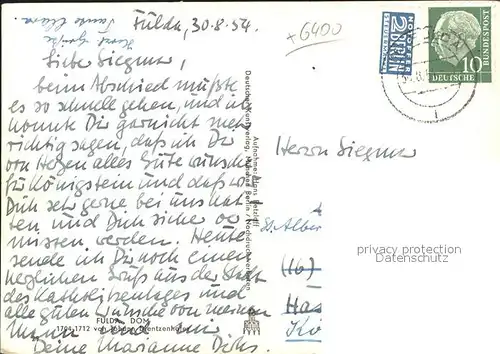 Fulda, 30.8.54.
+6400
Herzl. Grüße
Tante Clara
Liebe Siegmar,
beim Abschied mußte
es so schnell gehen, und ich
konnte Dir garnicht mehr
richtig sagen, daß ich Dir
von Herzen alles Gute wünsche
für Königstein und daß wir
Dich sehr gerne bei uns hat-
ten und Dich sicher ver-
missen werden. Heute
sende ich Dir noch einen
herzlichen Gruß aus der Stadt
des Katholikentages und
alle guten Wünsche von meinem
Mann
Deine Marianne Dirks.
FULDA, DOM
1704-1712 von Johann Dientzenhofer
Aufnahme: Hans Retzlaff
Deutscher Kunstverlag München Berlin / Nachdruck verboten
NOTOPFER
2 BERLIN
STEUERMARKE
10
DEUTSCHE
BUNDESPOST
Herrn Siegmar
St. Alber
(16)
Kö
privacy protection
Datenschutz